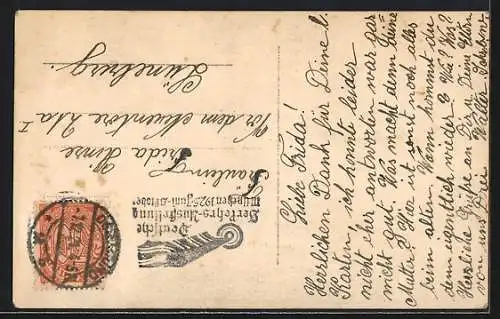 Liebe Frida!
Herzlichen Dank für Deine l.
Karten, ich konnte leider
nicht eher antworten war gar
nicht gut. Was macht denn Deine
Mutter? Hier ist sonst noch alles
beim alten. Wann kommst du
denn eigentlich wieder?
Herzliche Grüße an Dir u Deine Eltern
von uns Drei Walter
Deutsche
Verkehrs-Ausstellung
München 1925 Juni-Oktober
Fräulein
Frida
Vor dem neuentore
Lüneburg.